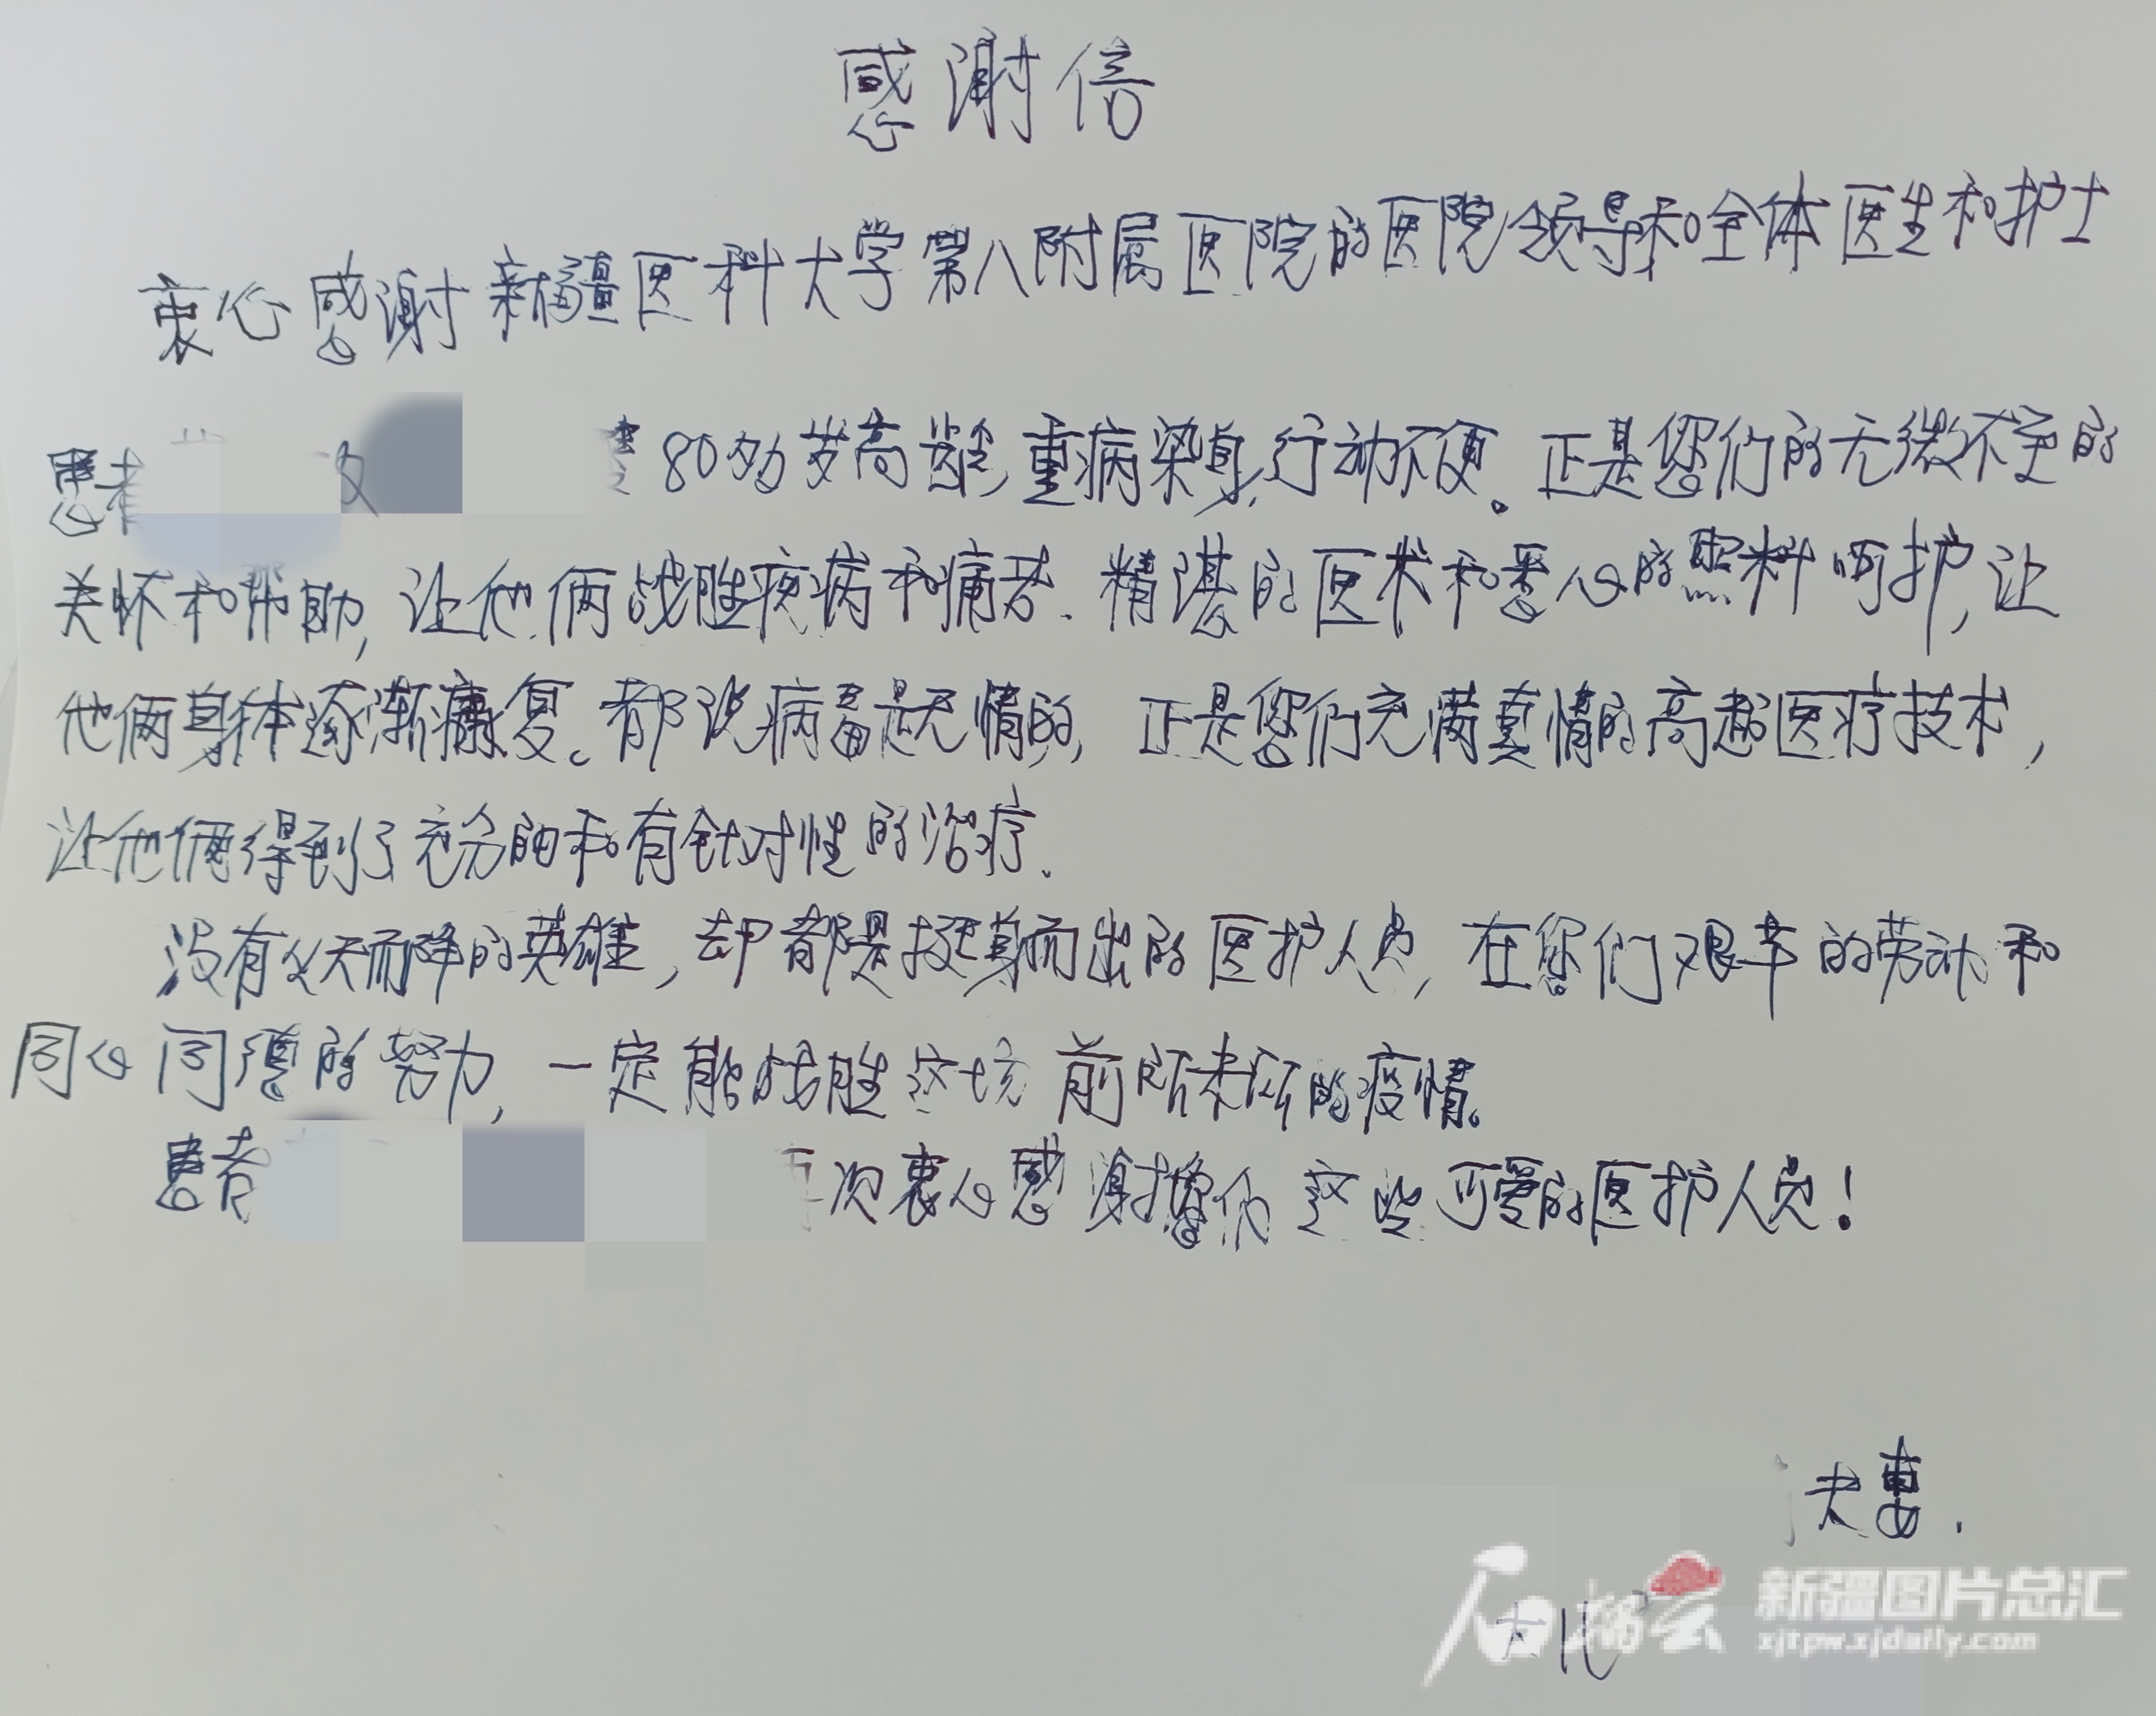 感谢信
衷心感谢新疆医科大学第八附属医院的医院领导和全体医生和护士
患者 80多岁高龄,重病染身,行动不便。正是您们的无微不至的
关怀和帮助,让他俩战胜疾病和痛苦.精湛的医术和悉心的照料呵护,让
他俩身体逐渐康复。都说病毒是无情的,正是您们充满真情的高超医疗技术,
让他俩得到了充分的和有针对性的治疗.
没有从天而降的英雄,却都是挺身而出的医护人员,在您们艰辛的劳动和
同心同德的努力,一定能战胜这场前所未所的疫情。
患者 再次衷心感谢您们这些可爱的医护人员!
夫妻.
石榴云 新疆图片总汇
xjtpw.xjdaily.com